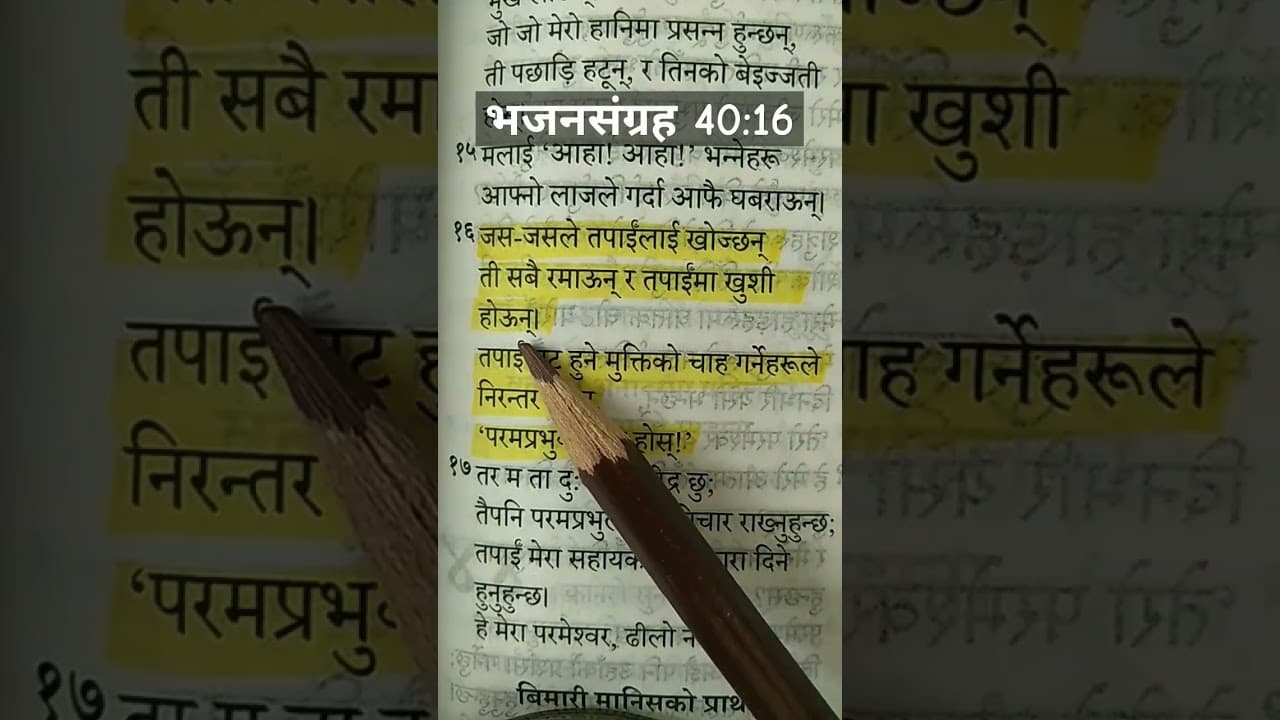 जो जो मेरो हानिमा प्रसन्न हुन्छन्,
ती पछाड़ि हटून्, र तिनको बेइज्जती
भजनसंग्रह 40:16
१५ मलाई ‘आहा! आहा!’ भन्नेहरू
आफ्नो लाजले गर्दा आफै घबराऊन्।
१६ जस-जसले तपाईंलाई खोज्छन्
ती सबै रमाऊन् र तपाईंमा खुशी
होऊन्।
तपाईं हुने मुक्तिको चाह गर्नेहरूले
निरन्तर
‘परमप्रभु होस्!’
१७ तर म ता छु;
तैपनि परमप्रभुले राख्नुहुन्छ;
तपाईं मेरा सहायक दिने
हुनुहुन्छ।
हे मेरा परमेश्वर, ढीलो
बिमारी मानिसको